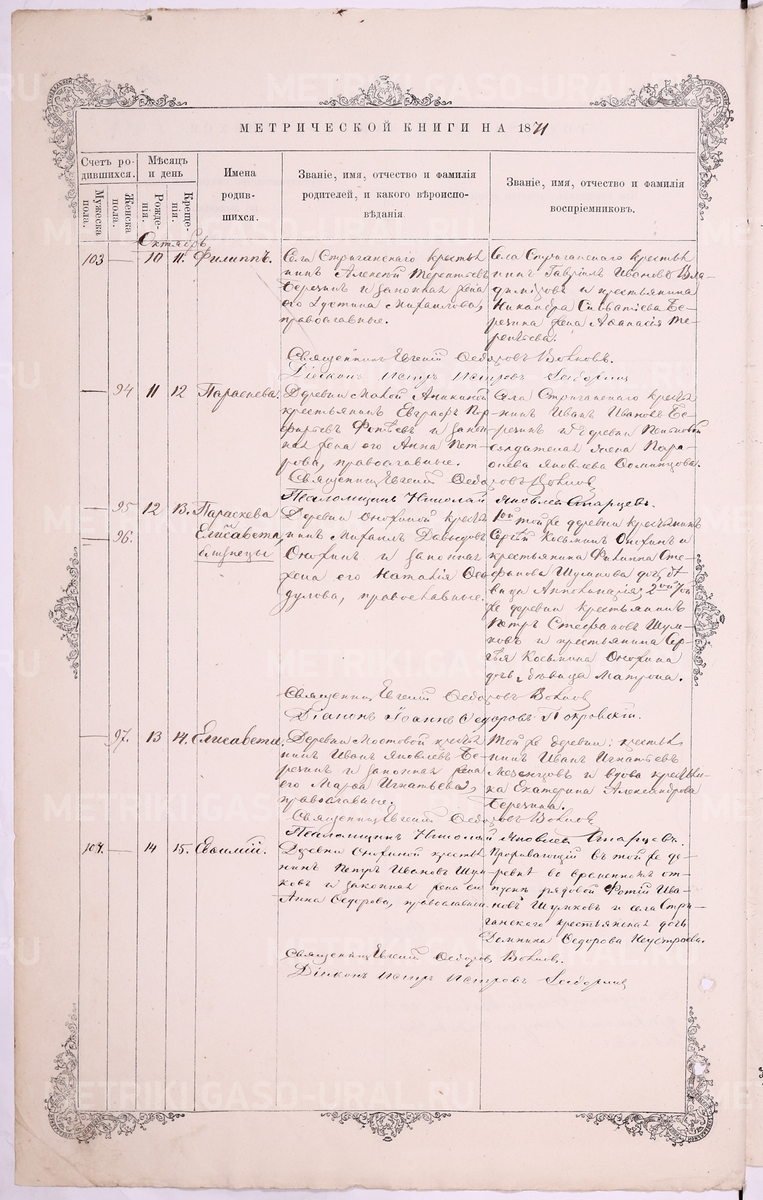 МЕТРИЧЕСКОЙ КНИГИ НА 1871
Счетъ родившихся.
Мужеска пола.
Женска пола.
Мѣсяцъ и день
Рожденія.
Крещенія.
Имена родившихся.
Званіе, имя, отчество и фамилія родителей, и какого вѣроисповѣданія
Званіе, имя, отчество и фамилія воспріемниковъ.
Октябрь
103 — 10 11. Филиппъ.
Села Строганскаго крестья
нинъ Алексѣй Терентьевъ
Березинъ и законная жена
его Устина Михаилова,
православные.
Села Строганскаго крестья
нинъ Гавріилъ Ивановъ Вла
димировъ и крестьянина
Никандра Савватіева Бе-
резина жена Аѳанасія Те-
рентьева.
Священникъ Евгеній Ѳедоровъ
Діаконъ Петръ Петровъ
— 94 11 12 Параскева.
Деревни Малой Аникиной
крестьянинъ Евграфъ Пор-
фирьевъ и закон
ная жена его Анна Пет-
рова, православные.
Села Строганскаго кресть
нинъ Иванъ Ивановъ Бе-
резинъ и деревни
жена Пара-
скева Яковлева
Священникъ Евгеній Ѳедоровъ
Псаломщикъ Николай Яковлевъ Старцевъ.
— 95 12 13. Параскева
— 96. Елисавета,
близнецы
Деревни Онохиной кресть
нинъ Михаилъ Давыдовъ
Онохинъ и законная
жена его Наталія Ѳео
дулова, православные.
1ой той же деревни крестьянинъ
Сергѣй Козьминъ Онохинъ и
крестьянина Филиппа Сте
фанова Шумкова дочь дѣ
вица Апполинарія; 2ой той
же деревни крестьянинъ
Петръ Стефановъ Шум-
ковъ и крестьянина Сер-
гѣя Козьмина Онохина
дочь дѣвица Матрона.
Священникъ Евгеній Ѳедоровъ
Діаконъ Іоаннъ Ѳедоровъ Покровскій.
— 97. 13 14. Елисавета.
Деревни Мостовой кресть
нинъ Иванъ Яковлевъ Бе-
резинъ и законная жена
его Марѳа Игнатьева,
православные.
Той же деревни: кресть
нинъ Иванъ Игнатьевъ
Мезенцовъ и вдова
Екатерина Александрова
Березина.
Священникъ Евгеній Ѳедоровъ
Псаломщикъ Николай Яковлевъ Старцевъ.
104. — 14 15. Евѳимій.
Деревни Онохиной кресть
нинъ Петръ Ивановъ Шум
ковъ и законная жена его
Анна Ѳедорова, православные
Проживающій въ той же де-
ревнѣ во временномъ от-
пуску рядовой Фотій Ива-
новъ Шумковъ и села Стро
ганскаго крестьянская дочь
Домнина Ѳедорова
Священникъ Евгеній Ѳедоровъ
Діаконъ Петръ Петровъ
METRIKI.GASO-URAL.RU